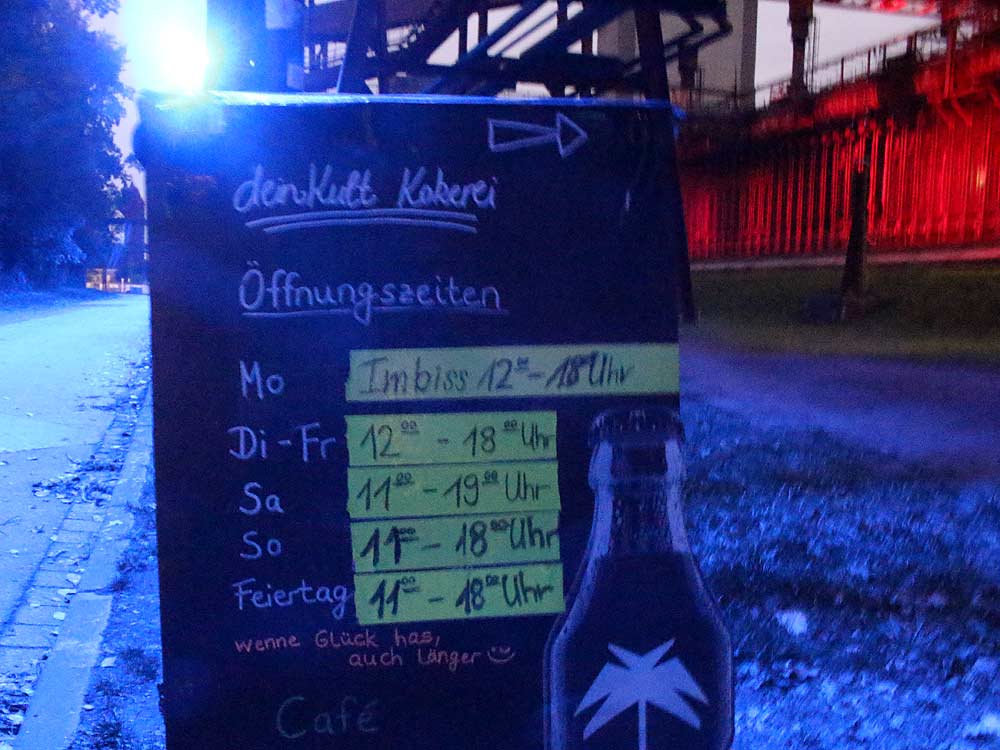 deinKult Kokerei
Öffnungszeiten
Mo Imbiss 12⁰⁰ - 18⁰⁰ Uhr
Di - Fr 12⁰⁰ - 18⁰⁰ Uhr
Sa 11⁰⁰ - 19⁰⁰ Uhr
So 11⁰⁰ - 18⁰⁰ Uhr
Feiertag 11⁰⁰ - 18⁰⁰ Uhr
wenne Glück has,
auch Länger
Café